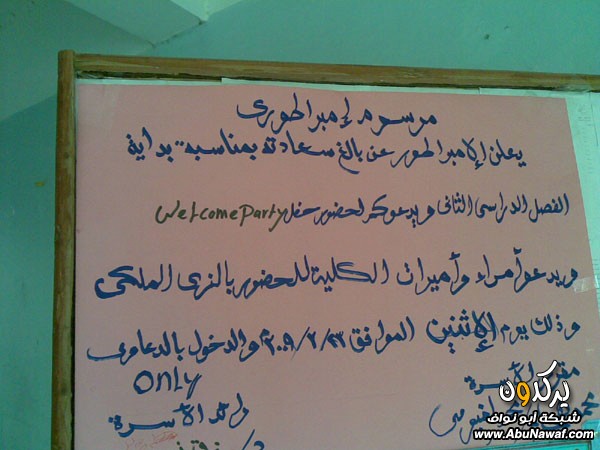 مرسوم إمبراطورى
يعلن الإمبراطور عن بالغ سعادته بمناسبة بداية
الفصل الدراسى الثانى ويدعوكم لحضور حفل Welcome Party
ويدعو أمراء وأميرات الكلية للحضور بالزى الملكى
وذلك يوم الإثنين الموافق ٢٠٠٩/٢/٢٣ والدخول بالدعاوى
Only
مقرر الأسرة
رائد الأسرة
يركدون
شبكة أبو نواف
www.AbuNawaf.com